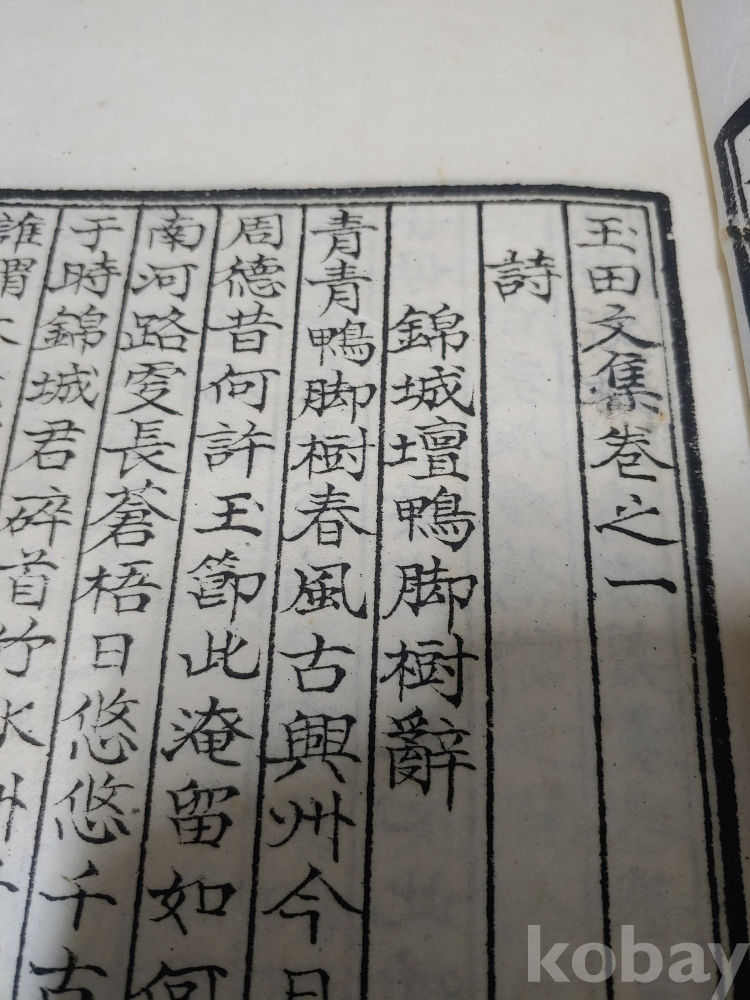 玉田文集卷之一
詩
錦城壇鴨脚樹辭
靑靑鴨脚樹春風古興州今日
周德昔何許玉節此淹留如何
南河路雯長蒼梧日悠悠千古
于時錦城君碎首
誰謂
kobay